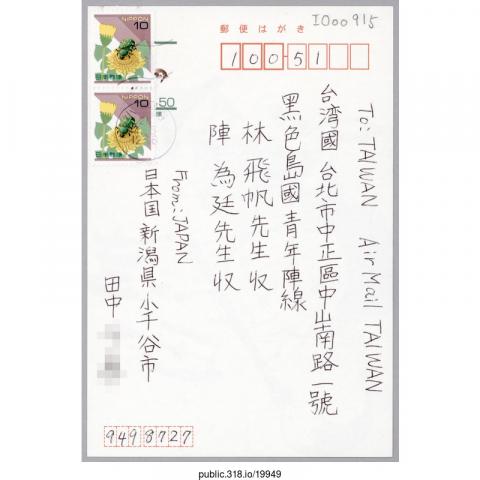 I000915
郵便はがき
100-51
NIPPON 10
日本郵便
NIPPON 10
日本郵便
50
To: TAIWAN Air Mail TAIWAN
台湾國 台北市中正區中山南路一號
黑色島國青年陣線
林飛帆先生收
陣為廷先生收
From: JAPAN
日本国 新潟県 小千谷市
田中
9498727
public.318.io/19949